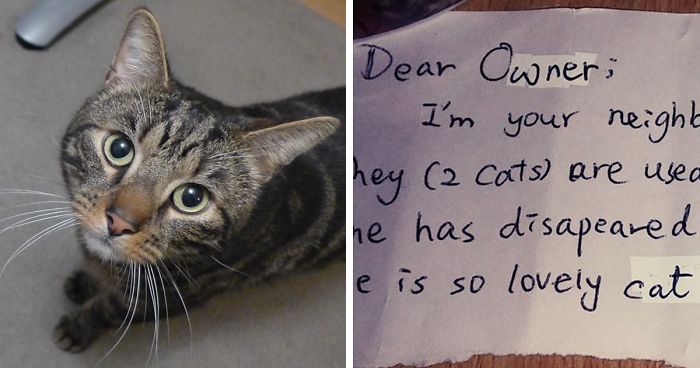 Dear Owner;
I'm your neighb
hey (2 cats) are used
he has disapeared
e is so lovely cat